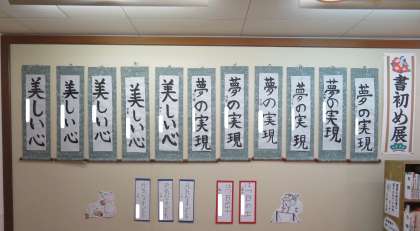 書初め展
夢の実現
夢の実現
夢の実現
夢の実現
夢の実現
夢の実現
美しい心
美しい心
美しい心
美しい心
美しい心